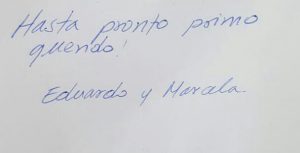 Hasta pronto primo
querido!
Eduardo y Marcela